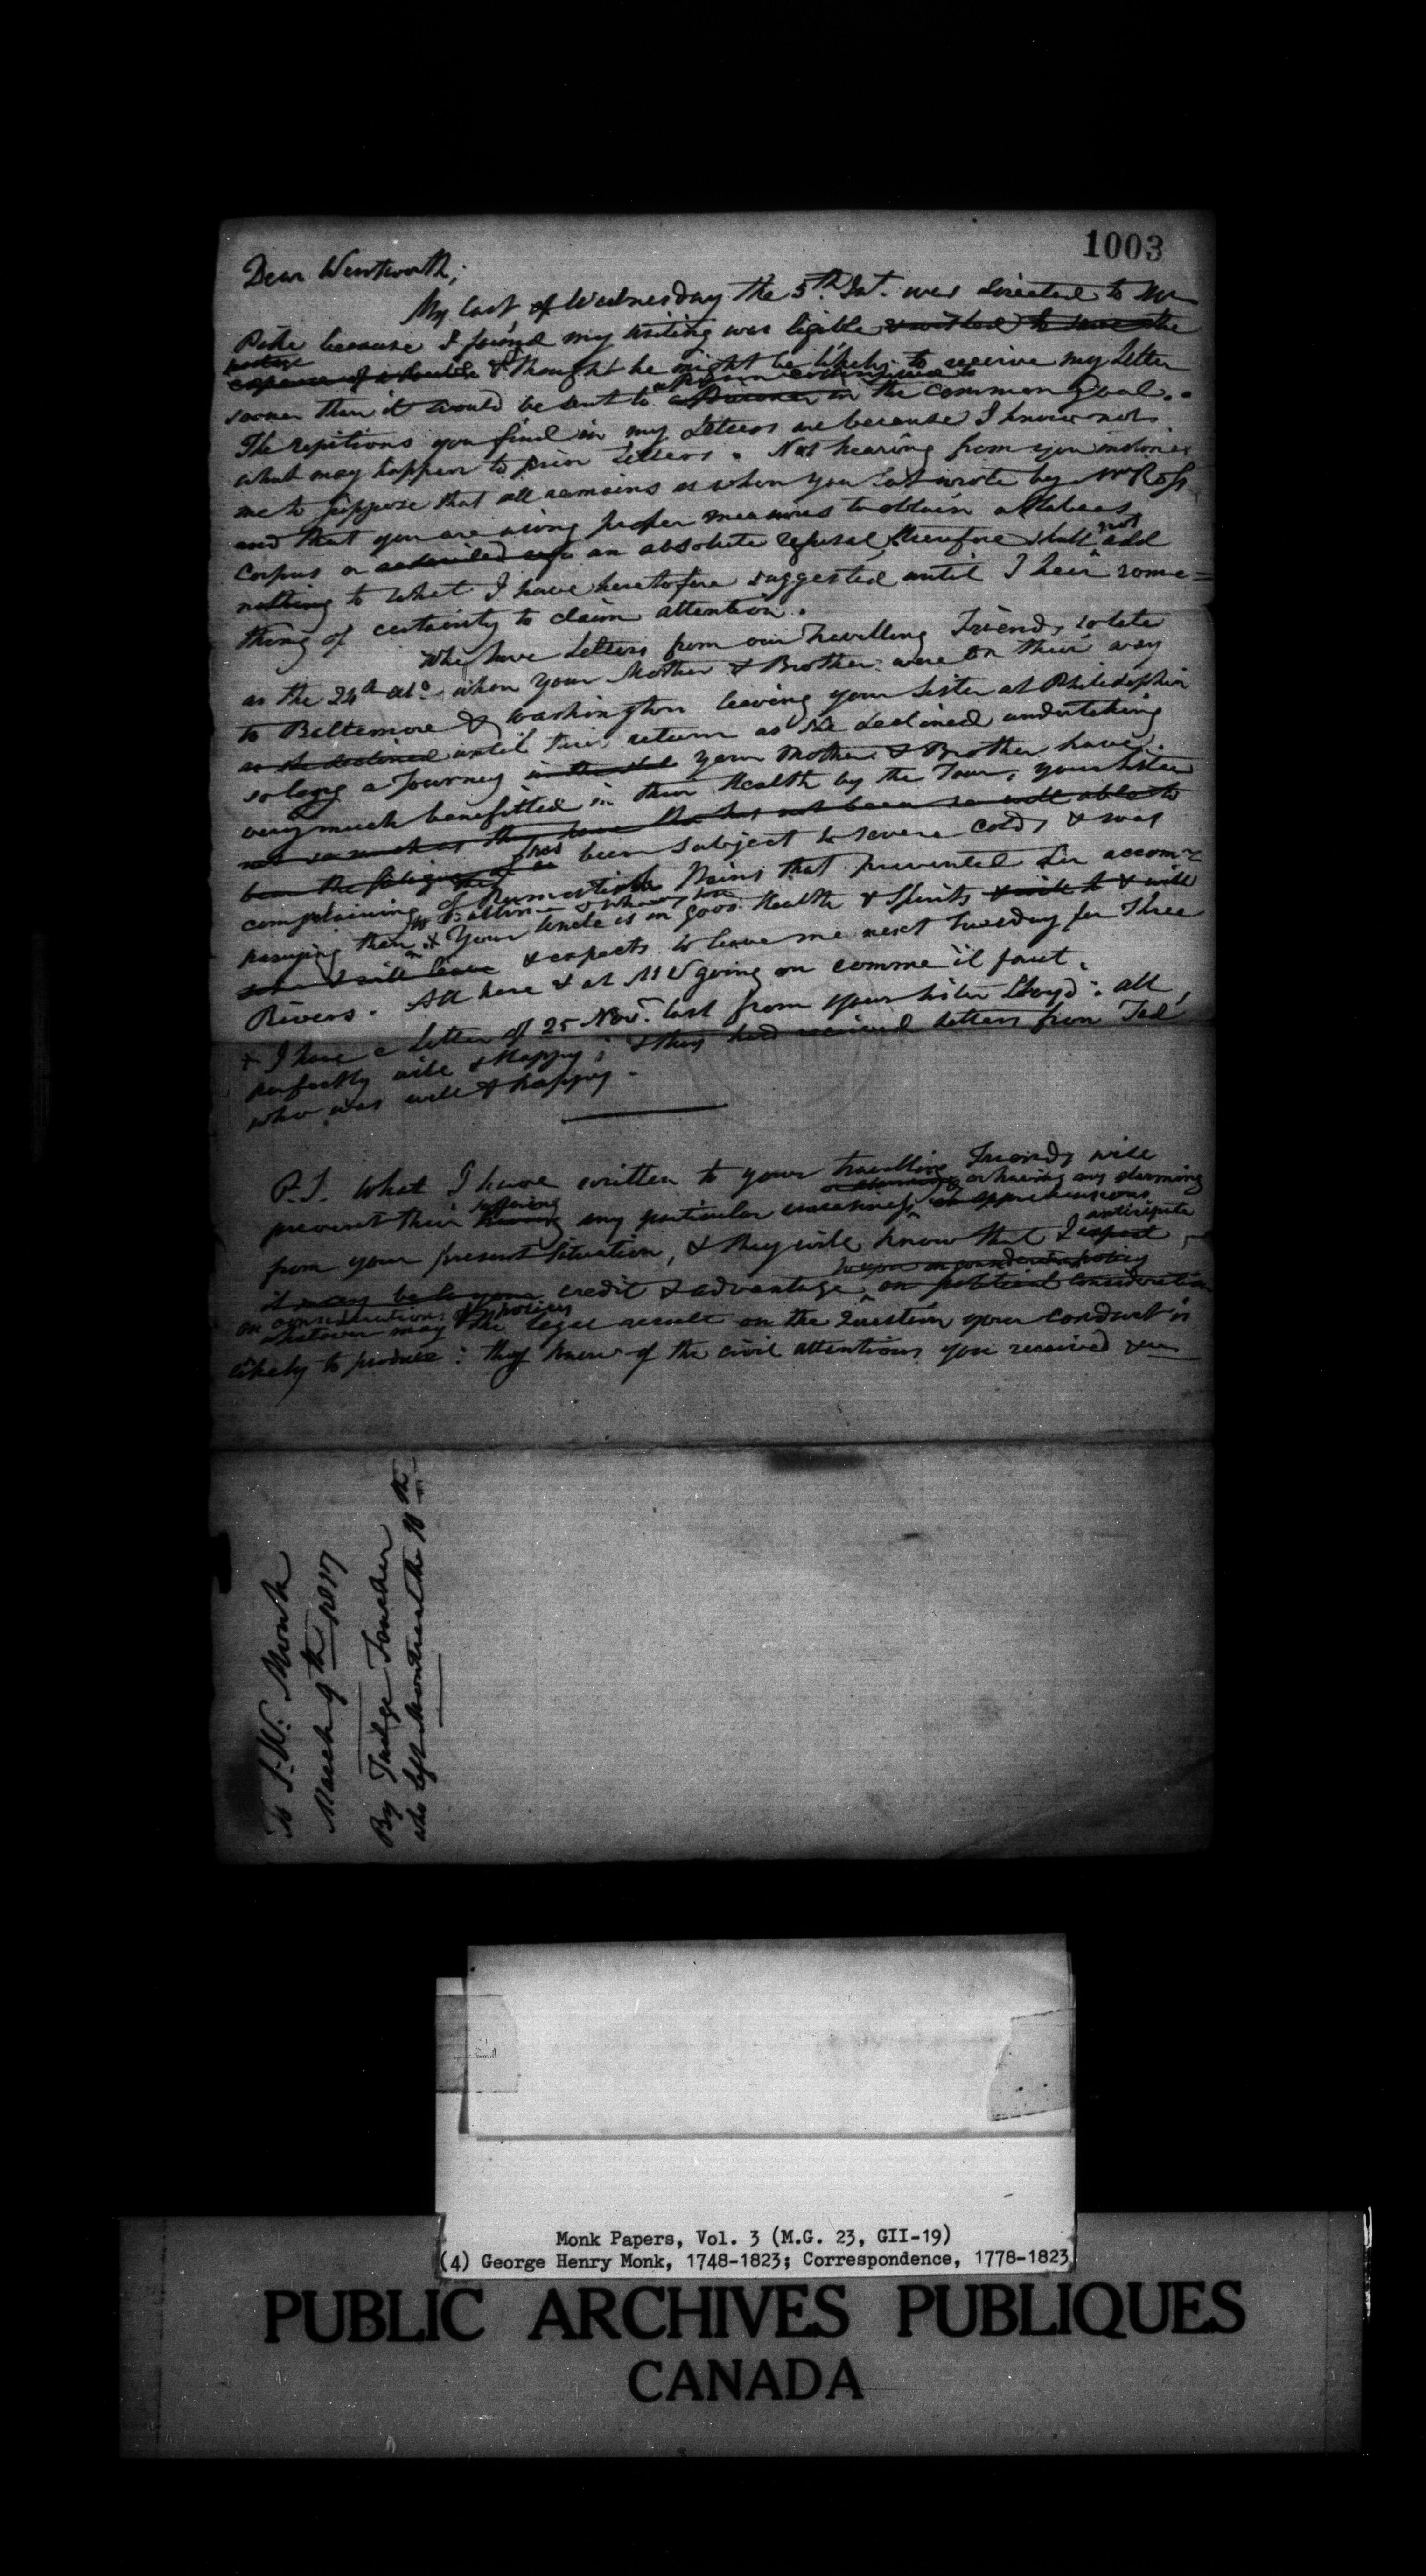 1003
Dear Wentworth;
My last of Wednesday the 5th. Int. was directed to Mr
Pike because I found my writing was legible & wished to save the
postage
expense of a double & thought he might be likely to receive my letter
a Person committed to
sooner than it would be sent to a Prisoner in the common Goal.
The repitions you find in my Letters are because I know not
what may happen to prior Letters. Not hearing from you induces
me to suppose that all remains as when you last wrote by Mr Ross
and that you are using proper measures to obtain a Habeas
Corpus or an absolute refusal, therefore shall not add
nothing to what I have heretofore suggested until I hear some=
thing of certainty to claim attention.
We have Letters from our Travelling Friends so late
as the 24th ulto. when your Mother & Brother were on their way
to Baltemore & Washington leaving your Sister at Philidelphia
as she declined until their return as she declined undertaking
so long a Journey your Mother & Brother have
very much benefitted in their Health by the Tour, your Sister
not so much as they have she has not been so well able to
bear the fatigue has been subject to severe colds & was
complaining of Rheumatick Pains that prevented her accom=
panying them to Baltimr & Washington
* Your Uncle is in good Health & Spirits
& will leave & expects to leave me next Tuesday for Three
Rivers. All here & at going on comme il faut.
* I have a Letter of 25 Novr. last from your Sister Lloyd: all
perfectly well & Happy; & they had received Letters from Ted
who was well & happy.
P.S. What I have written to your travelling Friends will
prevent their having suffering any particular uneasiness or having any alarming
apprehensions
from your present Situation, & they will know that I expect anticipate
it may be to your credit & advantage on political consideration
on considerations of policy
whatever may the legal result on the Question your conduct is
likely to produce: they know of the civil attentions you received
To S. W. Monk
March 9th 1817
By Judge Foucher
who left Montreal the 10th
Monk Papers, Vol. 3 (M.G. 23, GII-19)
(4) George Henry Monk, 1748-1823; Correspondence, 1778-1823
PUBLIC ARCHIVES PUBLIQUES
CANADA